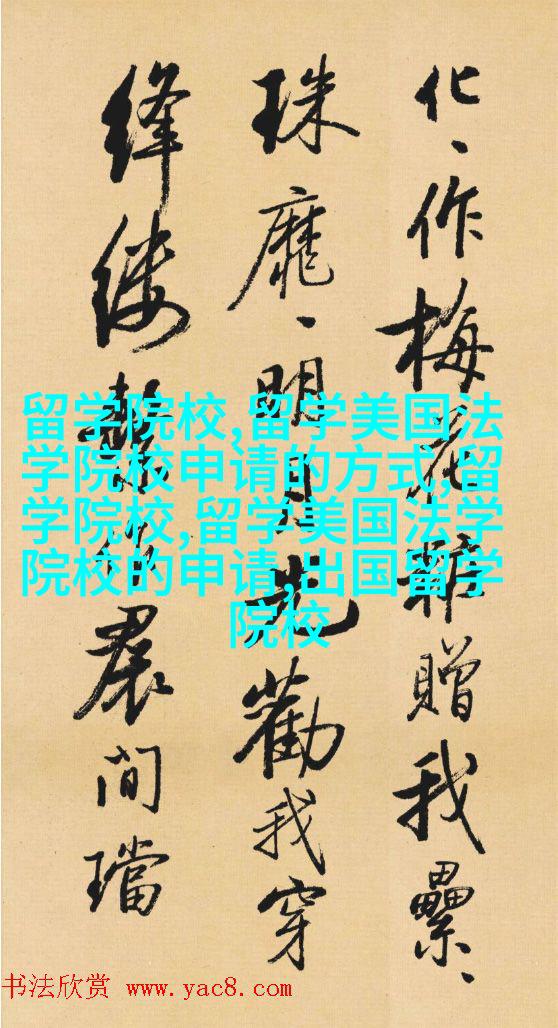 化、作梅花粧贈我纍、
珠靡、明月光勸我穿
絳縷繫作裠間璫
留学院校,留学美国法
学院校申请的方式,留
学院校,留学美国法学
院校的申请,出国留学
院校
书法欣赏 www.yac8.com